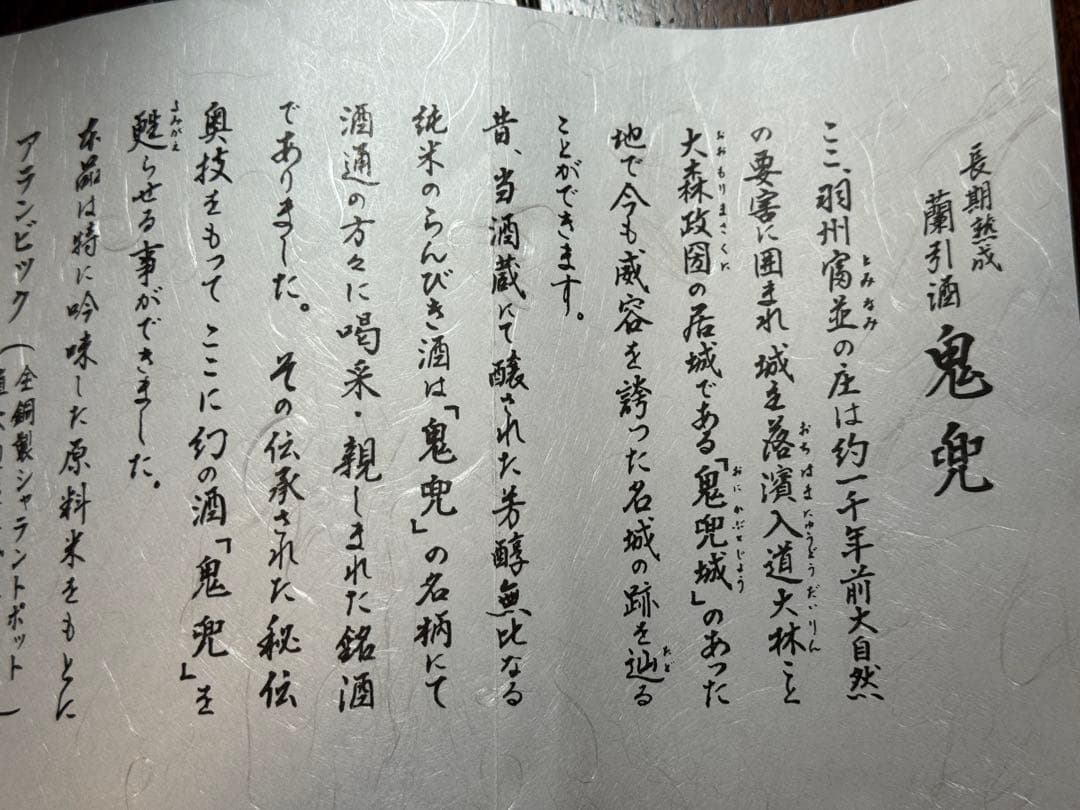 長期熟成
蘭引酒 鬼兜
ここ、羽州富並の庄は約一千年前大自然
の要害に囲まれ城主落濱入道大林こと
大森政国の居城である「鬼兜城」のあった
地で今も威容を誇った名城の跡を辿る
ことができます。
昔、当酒蔵にて醸された芳醇無比なる
純米のらんびき酒は「鬼兜」の名柄にて
酒通の方々に喝采・親しまれた銘酒
でありました。その伝承された秘伝
奥技をもってここに幻の酒「鬼兜」を
甦らせる事ができました。
本品は特に吟味した原料米をもとに
アランビック(全銅製シャラントポット